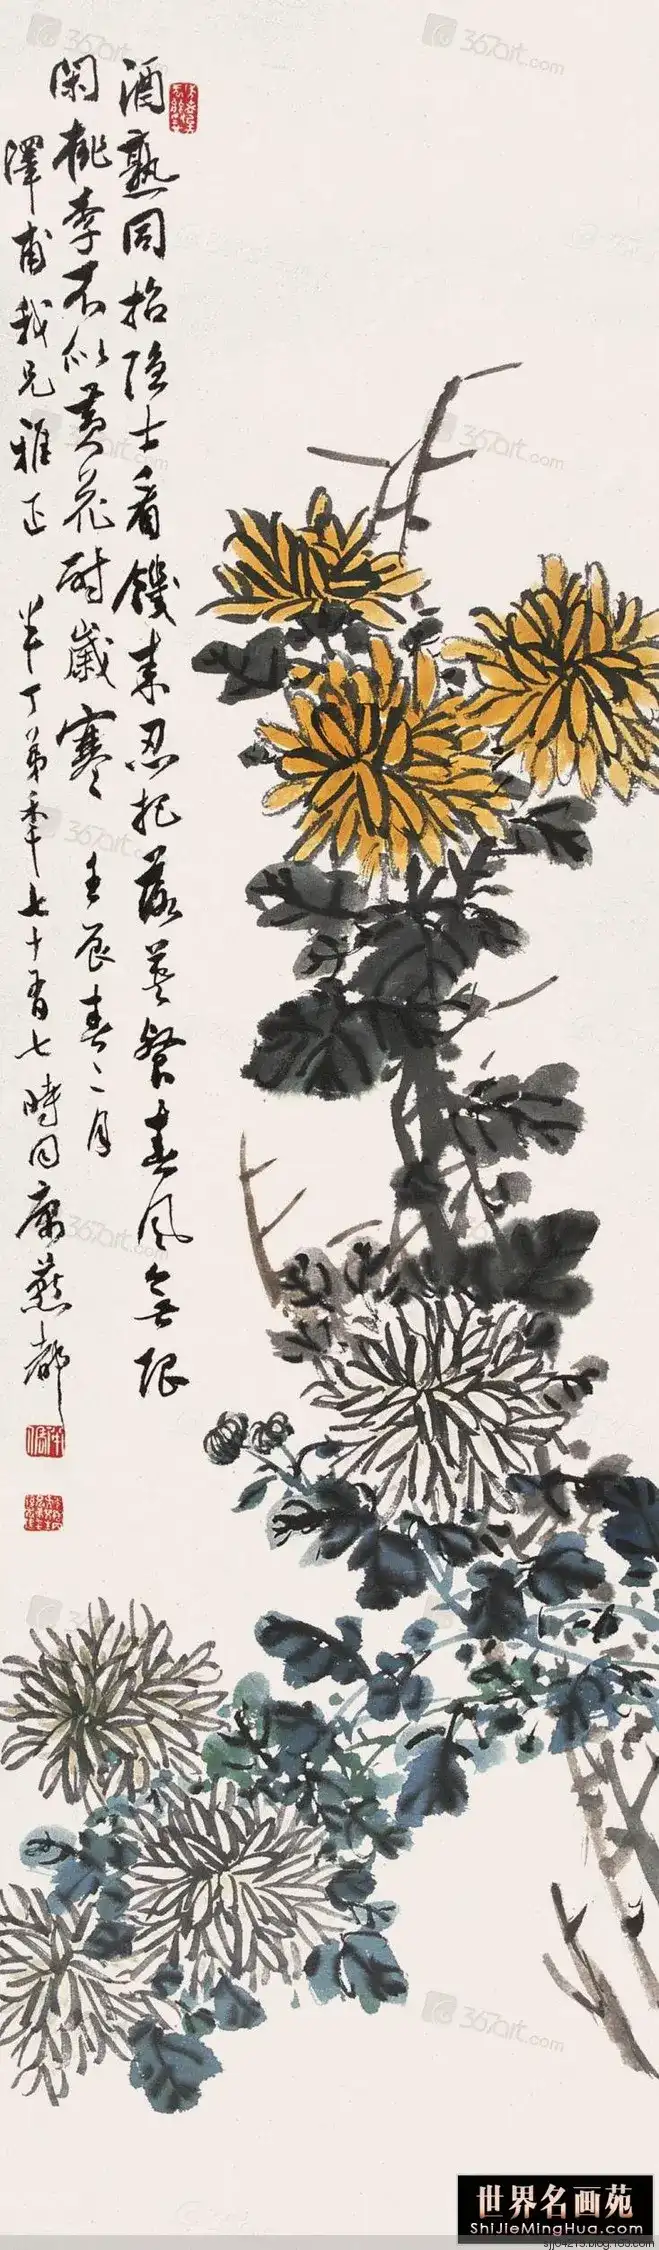 酒熟同招隐士看饑来忍把落英餐春風无限
闲桃李不似黄花耐歲寒 壬辰春二月
澤甫我兄雅正 半丁弟年七十有七時同寓燕都
367art.com
世界名画苑
ShiJieMingHua.com
sjj04213.blog.163.com